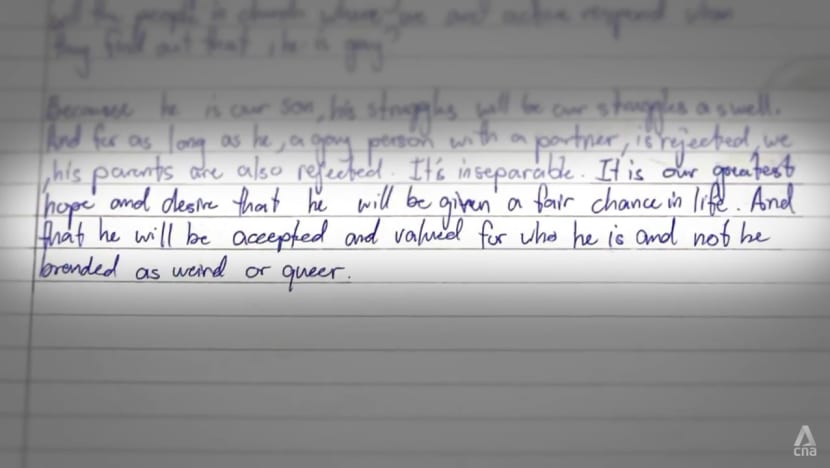 all the people in church where we are active respond when
they find out that he is gay?
Because he is our son, his struggles will be our struggles as well.
And for as long as he, a gay person with a partner, is rejected, we
, his parents are also rejected. It's inseparable. It is our greatest
hope and desire that he will be given a fair chance in life. And
that he will be accepted and valued for who he is and not be
branded as weird or queer.
cna